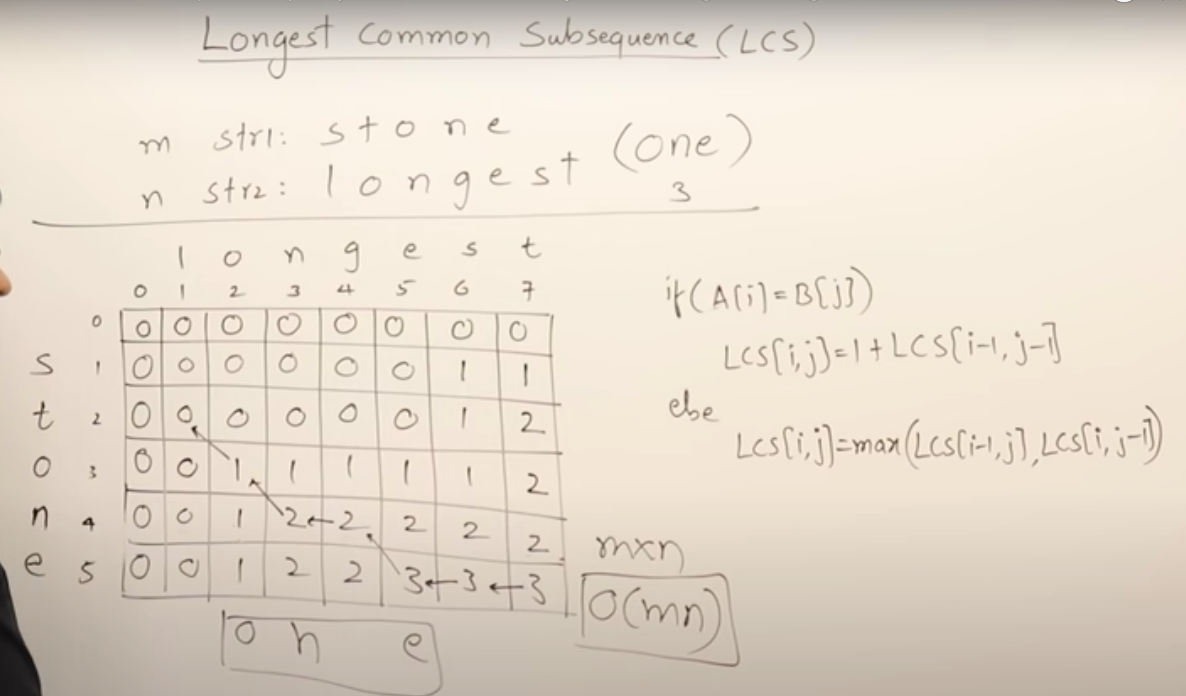 Longest Common Subsequence (LCS)
m str1: s t o n e
n str2: l o n g e s t (one)
3
l o n g e s t
0 1 2 3 4 5 6 7
0 0 0 0 0 0 0 0 0
s 1 0 0 0 0 0 0 1 1
t 2 0 0 0 0 0 0 1 2
o 3 0 0 1 1 1 1 1 2
n 4 0 0 1 2 ← 2 2 2 2
e 5 0 0 1 2 2 3 ← 3 ← 3
o n e
if(A[i]=B[j])
LCS[i,j]=1+LCS[i-1,j-1]
else
LCS[i,j]=max(LCS[i-1,j],LCS[i,j-1])
m×n
O(mn)